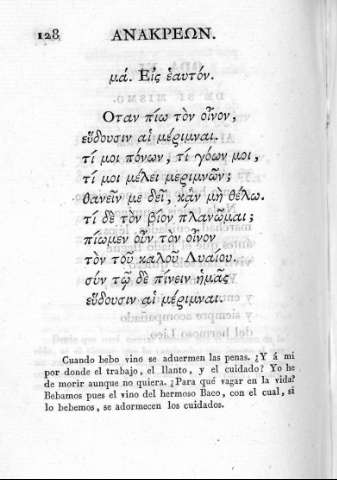 128 ΑΝΑΚΡΕΩΝ.
μά. Εἰς ἑαυτόν.
Οταν πίω τὸν οἶνον,
εὕδουσιν αἱ μέριμναι.
τί μοι πόνων, τί γόων μοι,
τί μοι μέλει μεριμνῶν;
θανεῖν με δεῖ, κἂν μὴ θέλω.
τί δὲ τὸν βίον πλανῶμαι;
πίωμεν οὖν τὸν οἶνον
τὸν τοῦ καλοῦ Λυαίου.
σύν τῷ δὲ πίνειν ἡμᾶς
εὕδουσιν αἱ μέριμναι.
Cuando bebo vino se aduermen las penas. ¿Y á mi
por donde el trabajo, el llanto, y el cuidado? Yo he
de morir aunque no quiera. ¿Para qué vagar en la vida?
Bebamos pues el vino del hermoso Baco, con el cual, si
lo bebemos, se adormecen los cuidados.